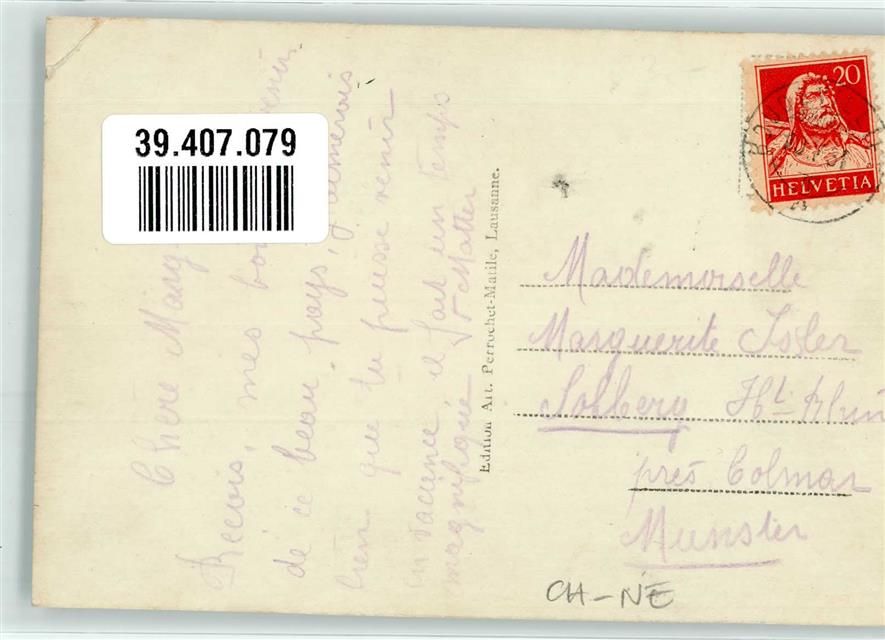 39.407.079
Chère
Recois, mes
de ce beau pays, j'aimerois
bien que tu puisse venir
en vacience, il fait un temps
magnifique
Edition Art. Perrochet-Matile, Lausanne.
20
HELVETIA
Mademoiselle
Marguerite Isler
Solberg Ht Rhin
près Colmar
Munster
CH-NE